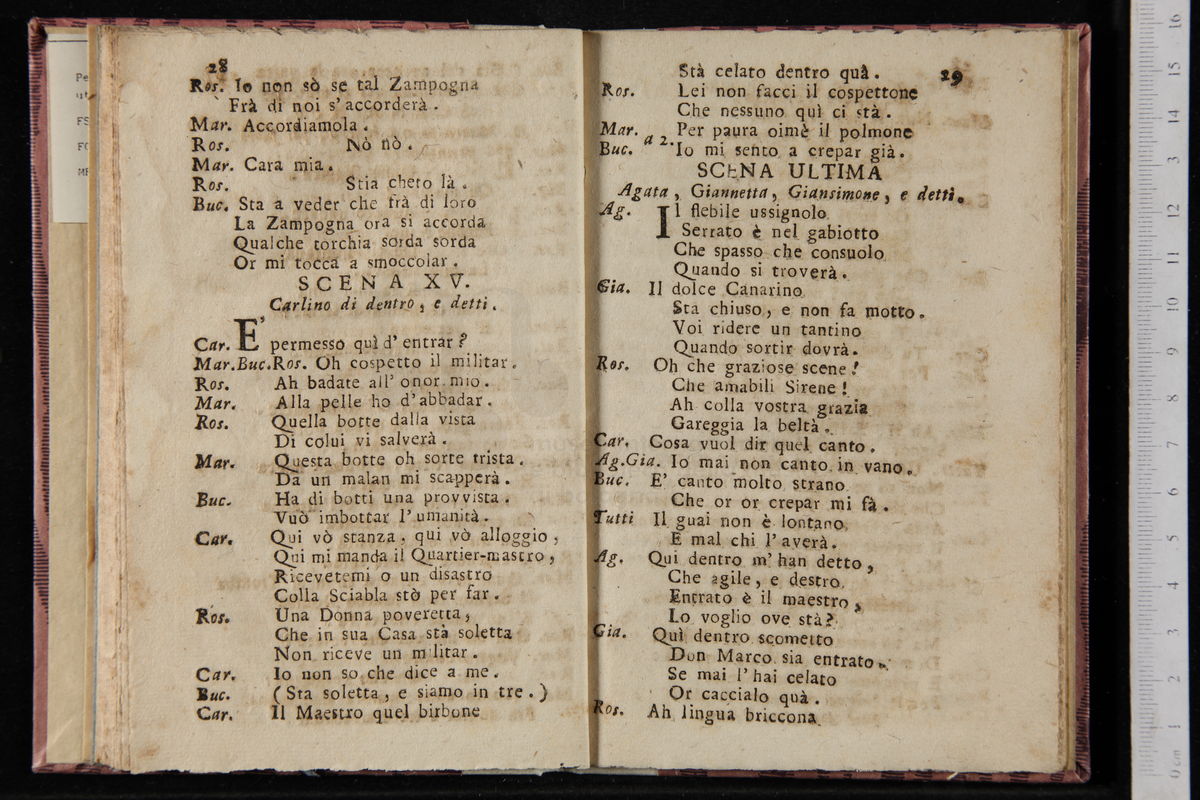 28
Ros. Io non sò se tal Zampogna
Frà di noi s'accorderà.
Mar. Accordiamola.
Ros. Nò nò.
Mar. Cara mia.
Ros. Stia cheto là.
Buc. Sta a veder che frà di loro
La Zampogna ora si accorda
Qualche torchia sorda sorda
Or mi tocca a smoccolar.
SCENA XV.
Carlino di dentro, e detti.
Car. E' permesso quì d'entrar?
Mar.Buc.Ros. Oh cospetto il militar.
Ros. Ah badate all'onor mio.
Mar. Alla pelle ho d'abbadar.
Ros. Quella botte dalla vista
Di colui vi salverà.
Mar. Questa botte oh sorte trista.
Da un malan mi scapperà.
Buc. Ha di botti una provvista.
Vuò imbottar l'umanità.
Car. Qui vò stanza, qui vò alloggio,
Qui mi manda il Quartier-mastro,
Ricevetemi o un disastro
Colla Sciabla stò per far.
Ros. Una Donna poveretta,
Che in sua Casa stà soletta
Non riceve un militar.
Car. Io non so che dice a me.
Buc. (Sta soletta, e siamo in tre.)
Car. Il Maestro quel birbone
29
Stà celato dentro quà.
Ros. Lei non facci il cospettone
Che nessuno quì ci stà.
Mar. a 2. Per paura oimè il polmone
Buc. Io mi sento a crepar già.
SCENA ULTIMA
Agata, Giannetta, Giansimone, e detti.
Ag. Il flebile ussignolo
Serrato è nel gabiotto
Che spasso che consuolo
Quando si troverà.
Gia. Il dolce Canarino
Sta chiuso, e non fa motto.
Voi ridere un tantino
Quando sortir dovrà.
Ros. Oh che graziose scene!
Che amabili Sirene!
Ah colla vostra grazia
Gareggia la beltà.
Car. Cosa vuol dir quel canto.
Ag.Gia. Io mai non canto in vano.
Buc. E' canto molto strano
Che or or crepar mi fà.
Tutti Il guai non è lontano
E mal chi l'averà.
Ag. Qui dentro m'han detto,
Che agile, e destro
Entrato è il maestro,
Lo voglio ove stà?
Gia. Quì dentro scometto
Don Marco sia entrato.
Se mai l'hai celato
Or caccialo quà.
Ros. Ah lingua briccona